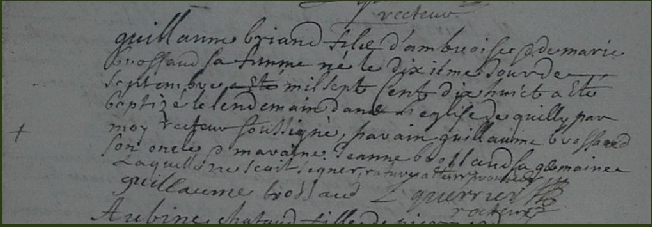 recteur
guillaume briand filz d'ambroise & de marie
brossaud sa femme né le dixiême jour de
septembre mil sept cent dix huict a été
baptizé le lendemain dans l'eglise de quilly par
moy recteur soussigné, parain guillaume brossaud
son oncle & maraine jeanne brossaud sa germaine
laquelle ne scait signer
guillaume brossaud L guerrier
recteur
Aubine fille de